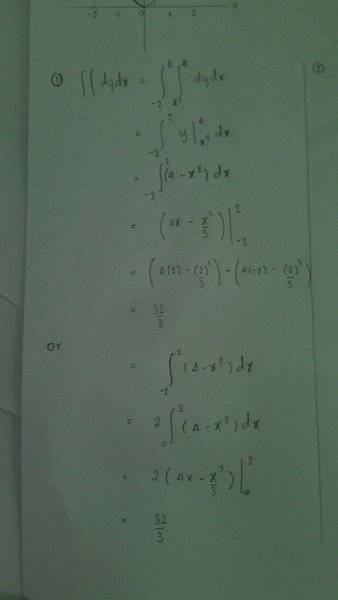 -2 -1 1 2 x
① ∫∫ dydx = ∫₋₂² ∫ₓ²⁴ dydx
②
= ∫₋₂² y |ₓ²⁴ dx
= ∫₋₂² (4 - x²) dx
= (4x - x³/3) |₋₂²
= (4(2) - (2)³/3) - (4(-2) - (2)³/3)
= 32/3
Or
= ∫₋₂² (4 - x²) dx
= 2 ∫₀² (4 - x²) dx
= 2 (4x - x³/3) |₀²
= 32/3